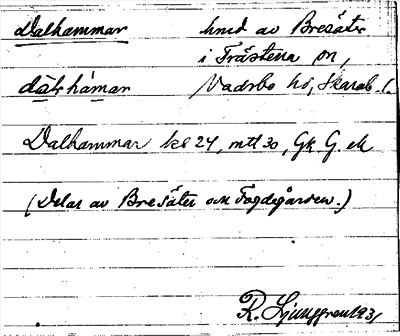 Dalhammar hmd av Bresäter
i Trästena sn,
dālhámar Vadsbo hd, Skarab. l.
Dalhammar ke 24, mtl 30, Gk G. ek
(Delar av Bresäter och Fogdegården.)
R. Ljunggren 1931